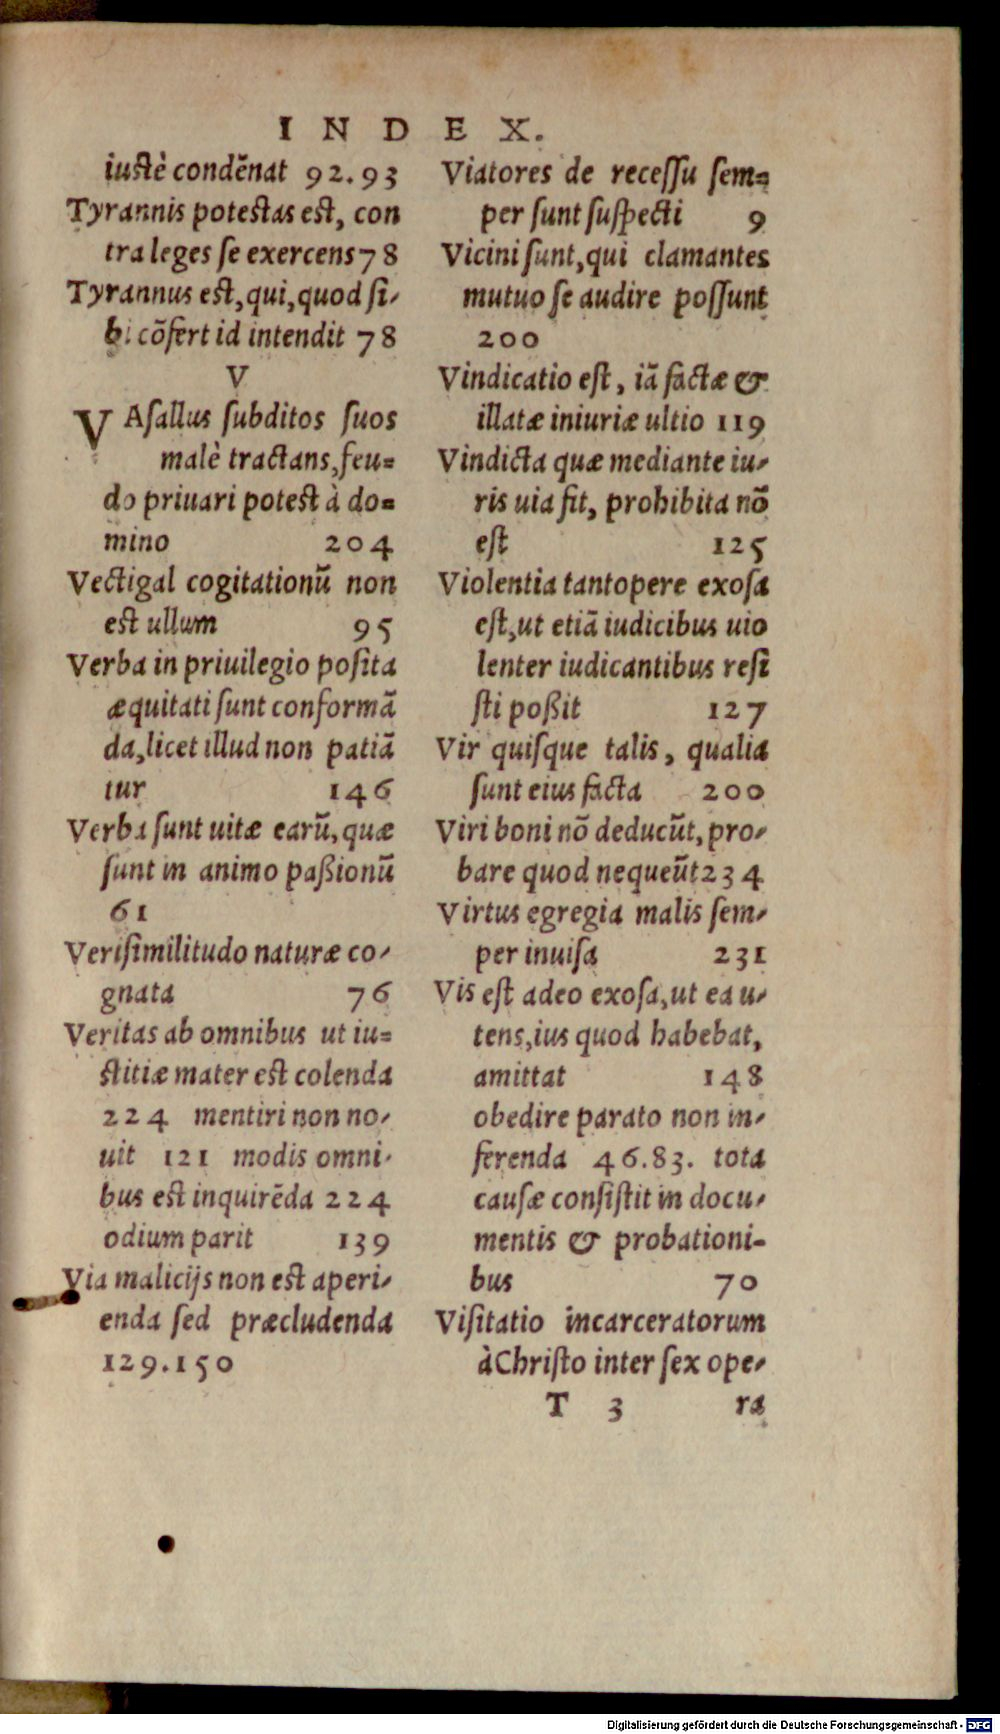 INDEX.
iustè condẽnat 92.93
Tyrannis potestas est, con
tra leges se exercens 78
Tyrannus est, qui, quod si-
bi cõfert id intendit 78
V
VAſallus ſubditos ſuos
malè tractans, feu=
do priuari potest à do=
mino 204
Vectigal cogitationũ non
est ullum 95
Verba in priuilegio poſita
æquitati ſunt conformã
da, licet illud non patiã
tur 146
Verba ſunt uitæ earũ, quæ
ſunt in animo paßionũ
61
Veriſimilitudo naturæ co-
gnata 76
Veritas ab omnibus ut iu=
stitiæ mater est colenda
224 mentiri non no-
uit 121 modis omni-
bus est inquirẽda 224
odium parit 139
Via malicijs non est aperi-
enda ſed præcludenda
129.150
Viatores de receſſu ſem=
per ſunt ſuſpecti 9
Vicini ſunt, qui clamantes
mutuo ſe audire poſſunt
200
Vindicatio eſt, iã factæ &
illatæ iniuriæ ultio 119
Vindicta quæ mediante iu-
ris uia fit, prohibita nõ
eſt 125
Violentia tantopere exoſa
eſt, ut etiã iudicibus uio
lenter iudicantibus reſi
ſti poßit 127
Vir quiſque talis, qualia
ſunt eius facta 200
Viri boni nõ deducũt, pro-
bare quod nequeũt 234
Virtus egregia malis ſem-
per inuiſa 231
Vis eſt adeo exoſa, ut ea u-
tens, ius quod habebat,
amittat 148
obedire parato non in-
ferenda 46.83. tota
cauſæ conſiſtit in docu-
mentis & probationi-
bus 70
Viſitatio incarceratorum
à Chriſto inter ſex ope-
T 3 ra
Digitalisierung gefördert durch die Deutsche Forschungsgemeinschaft - DFG